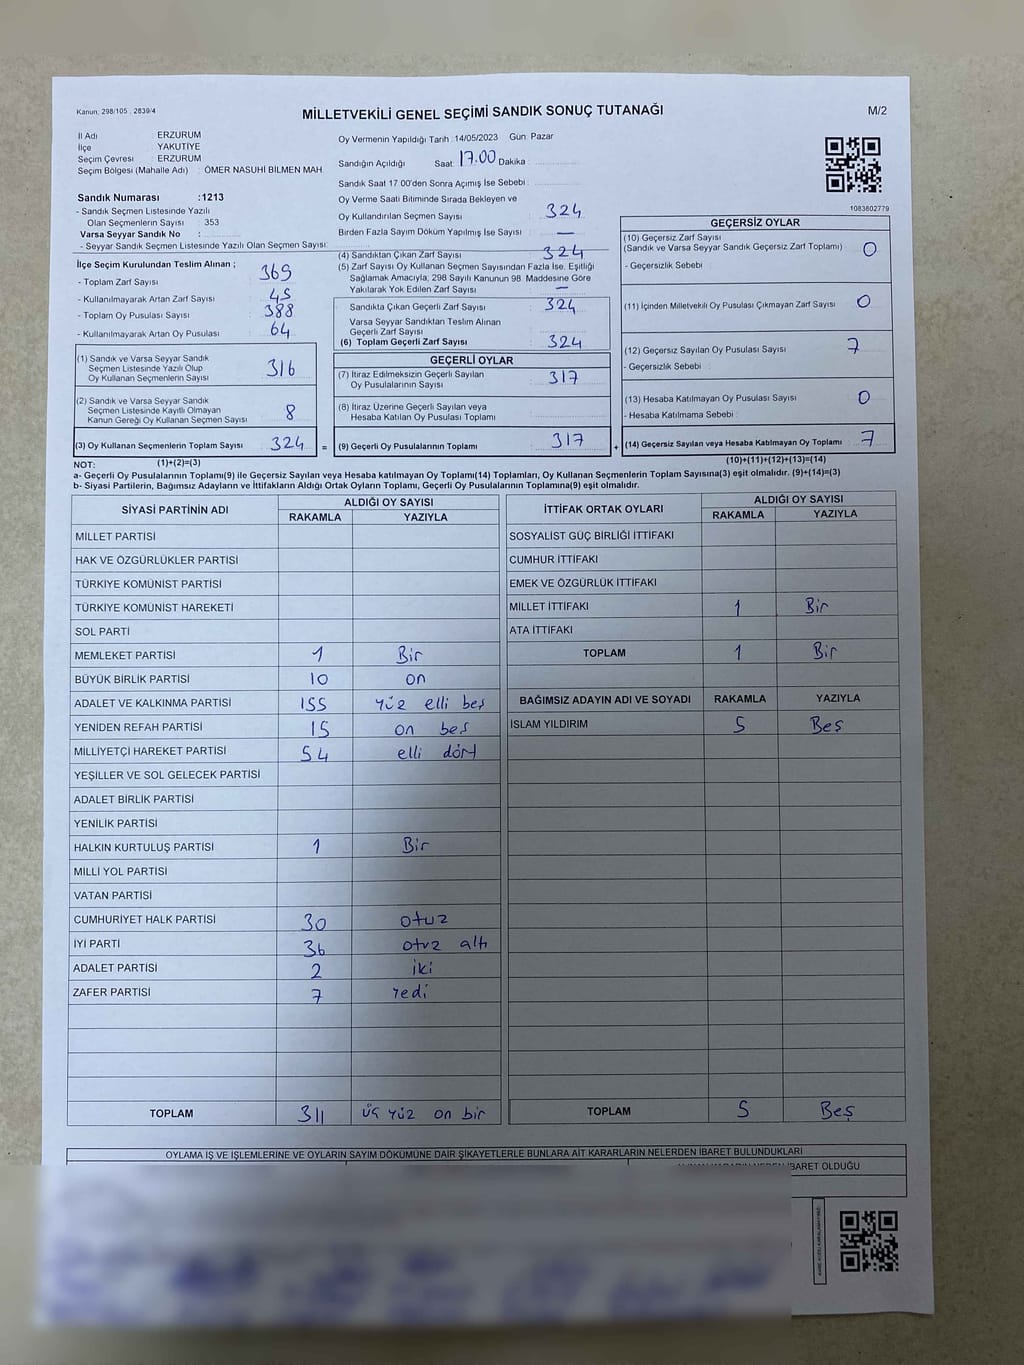 Kanun: 298/105 : 2839/4
MİLLETVEKİLİ GENEL SEÇİMİ SANDIK SONUÇ TUTANAĞI
M/2
İl Adı : ERZURUM
İlçe : YAKUTİYE
Seçim Çevresi : ERZURUM
Seçim Bölgesi (Mahalle Adı) : ÖMER NASUHİ BİLMEN MAH.
Sandık Numarası :1213
- Sandık Seçmen Listesinde Yazılı
Olan Seçmenlerin Sayısı : 353
Varsa Seyyar Sandık No :
- Seyyar Sandık Seçmen Listesinde Yazılı Olan Seçmen Sayısı:
Oy Vermenin Yapıldığı Tarih : 14/05/2023 Gün: Pazar
Sandığın Açıldığı Saat: 17.00 Dakika :
Sandık Saat 17:00'den Sonra Açımış İse Sebebi :
Oy Verme Saati Bitiminde Sırada Bekleyen ve
Oy Kullandırılan Seçmen Sayısı : 324
Birden Fazla Sayım Döküm Yapılmış İse Sayısı : —
1083802779
İlçe Seçim Kurulundan Teslim Alınan ;
- Toplam Zarf Sayısı : 369
- Kullanılmayarak Artan Zarf Sayısı : 45
- Toplam Oy Pusulası Sayısı : 388
- Kullanılmayarak Artan Oy Pusulası : 64
(1) Sandık ve Varsa Seyyar Sandık
Seçmen Listesinde Yazılı Olup
Oy Kullanan Seçmenlerin Sayısı : 316
(2) Sandık ve Varsa Seyyar Sandık
Seçmen Listesinde Kayıtlı Olmayan
Kanun Gereği Oy Kullanan Seçmen Sayısı : 8
(3) Oy Kullanan Seçmenlerin Toplam Sayısı : 324 =
(4) Sandıktan Çıkan Zarf Sayısı : 324
(5) Zarf Sayısı Oy Kullanan Seçmen Sayısından Fazla İse, Eşitliği
Sağlamak Amacıyla; 298 Sayılı Kanunun 98. Maddesine Göre
Yakılarak Yok Edilen Zarf Sayısı : —
Sandıkta Çıkan Geçerli Zarf Sayısı : 324
Varsa Seyyar Sandıktan Teslim Alınan
Geçerli Zarf Sayısı :
(6) Toplam Geçerli Zarf Sayısı : 324
GEÇERLİ OYLAR
(7) İtiraz Edilmeksizin Geçerli Sayılan
Oy Pusulalarının Sayısı : 317
(8) İtiraz Üzerine Geçerli Sayılan veya
Hesaba Katılan Oy Pusulası Toplamı :
(9) Geçerli Oy Pusulalarının Toplamı : 317 +
GEÇERSİZ OYLAR
(10) Geçersiz Zarf Sayısı : 0
(Sandık ve Varsa Seyyar Sandık Geçersiz Zarf Toplamı)
- Geçersizlik Sebebi :
(11) İçinden Milletvekili Oy Pusulası Çıkmayan Zarf Sayısı : 0
(12) Geçersiz Sayılan Oy Pusulası Sayısı : 7
- Geçersizlik Sebebi :
(13) Hesaba Katılmayan Oy Pusulası Sayısı : 0
- Hesaba Katılmama Sebebi :
(14) Geçersiz Sayılan veya Hesaba Katılmayan Oy Toplamı : 7
NOT: (1)+(2)=(3)
(10)+(11)+(12)+(13)=(14)
a- Geçerli Oy Pusulalarının Toplamı(9) ile Geçersiz Sayılan veya Hesaba katılmayan Oy Toplamı(14) Toplamları, Oy Kullanan Seçmenlerin Toplam Sayısına(3) eşit olmalıdır. (9)+(14)=(3)
b- Siyasi Partilerin, Bağımsız Adayların ve İttifakların Aldığı Ortak Oyların Toplamı, Geçerli Oy Pusulalarının Toplamına(9) eşit olmalıdır.
SİYASİ PARTİNİN ADI ALDIĞI OY SAYISI
RAKAMLA YAZIYLA
MİLLET PARTİSİ
HAK VE ÖZGÜRLÜKLER PARTİSİ
TÜRKİYE KOMÜNİST PARTİSİ
TÜRKİYE KOMÜNİST HAREKETİ
SOL PARTİ
MEMLEKET PARTİSİ 1 Bir
BÜYÜK BİRLİK PARTİSİ 10 on
ADALET VE KALKINMA PARTİSİ 155 yüz elli beş
YENİDEN REFAH PARTİSİ 15 on beş
MİLLİYETÇİ HAREKET PARTİSİ 54 elli dört
YEŞİLLER VE SOL GELECEK PARTİSİ
ADALET BİRLİK PARTİSİ
YENİLİK PARTİSİ
HALKIN KURTULUŞ PARTİSİ 1 Bir
MİLLİ YOL PARTİSİ
VATAN PARTİSİ
CUMHURİYET HALK PARTİSİ 30 otuz
İYİ PARTİ 36 otuz altı
ADALET PARTİSİ 2 iki
ZAFER PARTİSİ 7 Yedi
TOPLAM 311 üç yüz on bir
İTTİFAK ORTAK OYLARI ALDIĞI OY SAYISI
RAKAMLA YAZIYLA
SOSYALİST GÜÇ BİRLİĞİ İTTİFAKI
CUMHUR İTTİFAKI
EMEK VE ÖZGÜRLÜK İTTİFAKI
MİLLET İTTİFAKI 1 Bir
ATA İTTİFAKI
TOPLAM 1 Bir
BAĞIMSIZ ADAYIN ADI VE SOYADI RAKAMLA YAZIYLA
İSLAM YILDIRIM 5 Beş
TOPLAM 5 Beş
OYLAMA İŞ VE İŞLEMLERİNE VE OYLARIN SAYIM DÖKÜMÜNE DAİR ŞİKAYETLERLE BUNLARA AİT KARARLARIN NELERDEN İBARET BULUNDUKLARI
İBARET OLDUĞU